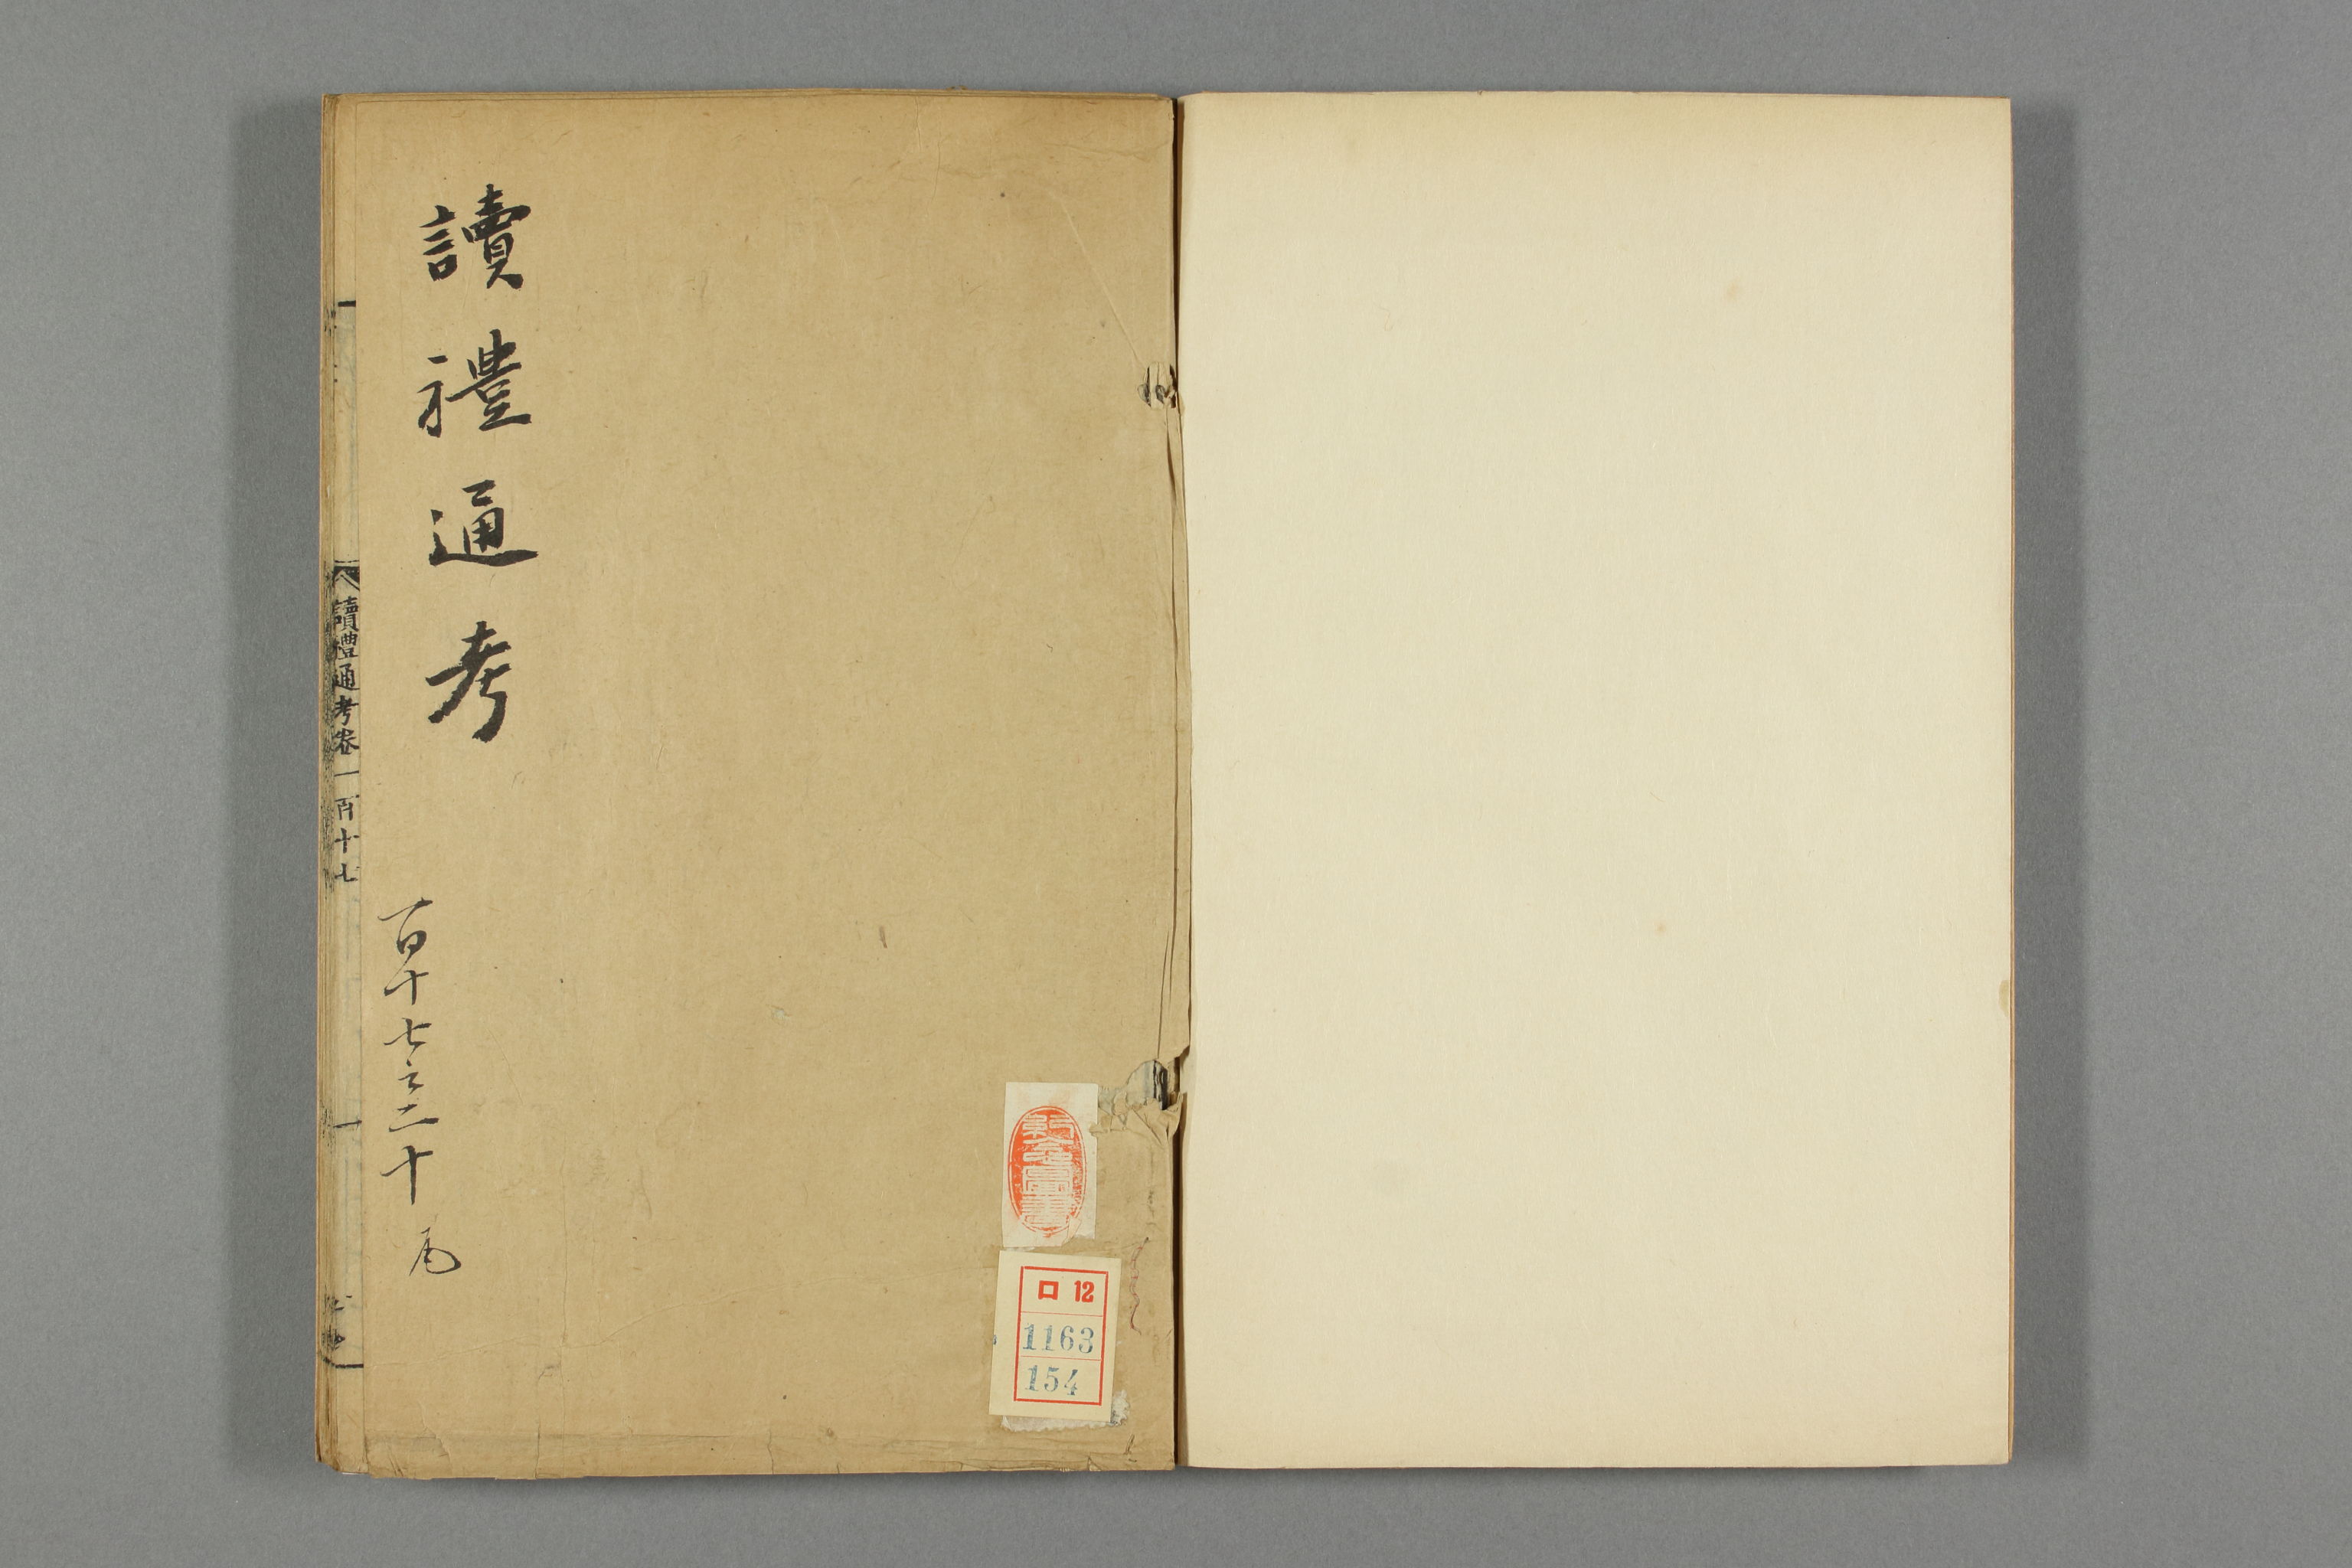 讀禮通考
百十七之二十
尾
讀禮通考卷一百十七
一
ロ 12
1163
154